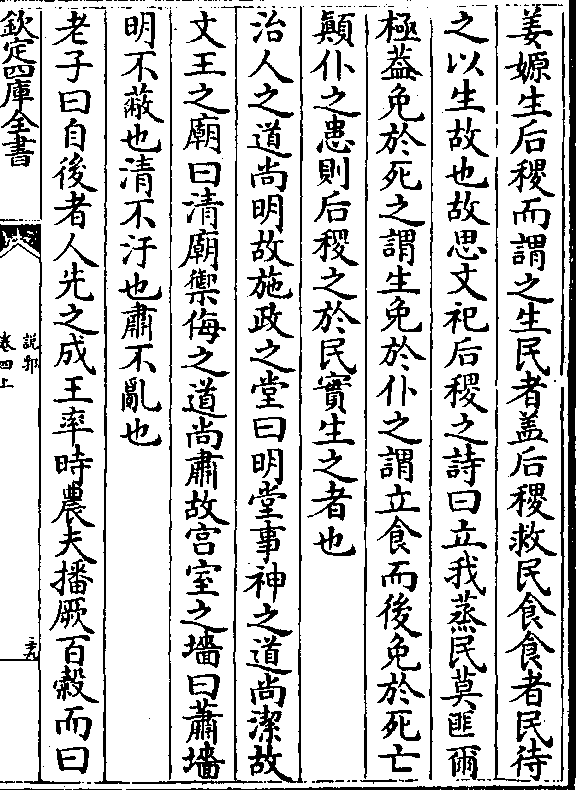 姜嫄生后稷而謂之生民者盖后稷救民食食者民待
之以生故也故思文祀后稷之詩曰立我蒸民莫匪爾
極葢免於死之謂生免於仆之謂立食而後免於死亡
顛仆之患則后稷之於民實生之者也
治人之道尚明故施政之堂曰明堂事神之道尚潔故
文王之廟曰清廟禦侮之道尚肅故宫室之墻曰蕭墻
明不蔽也清不汙也肅不亂也
老子曰自後者人先之成王率時農夫播厥百榖而曰
欽定四庫全書
説郛
卷四上